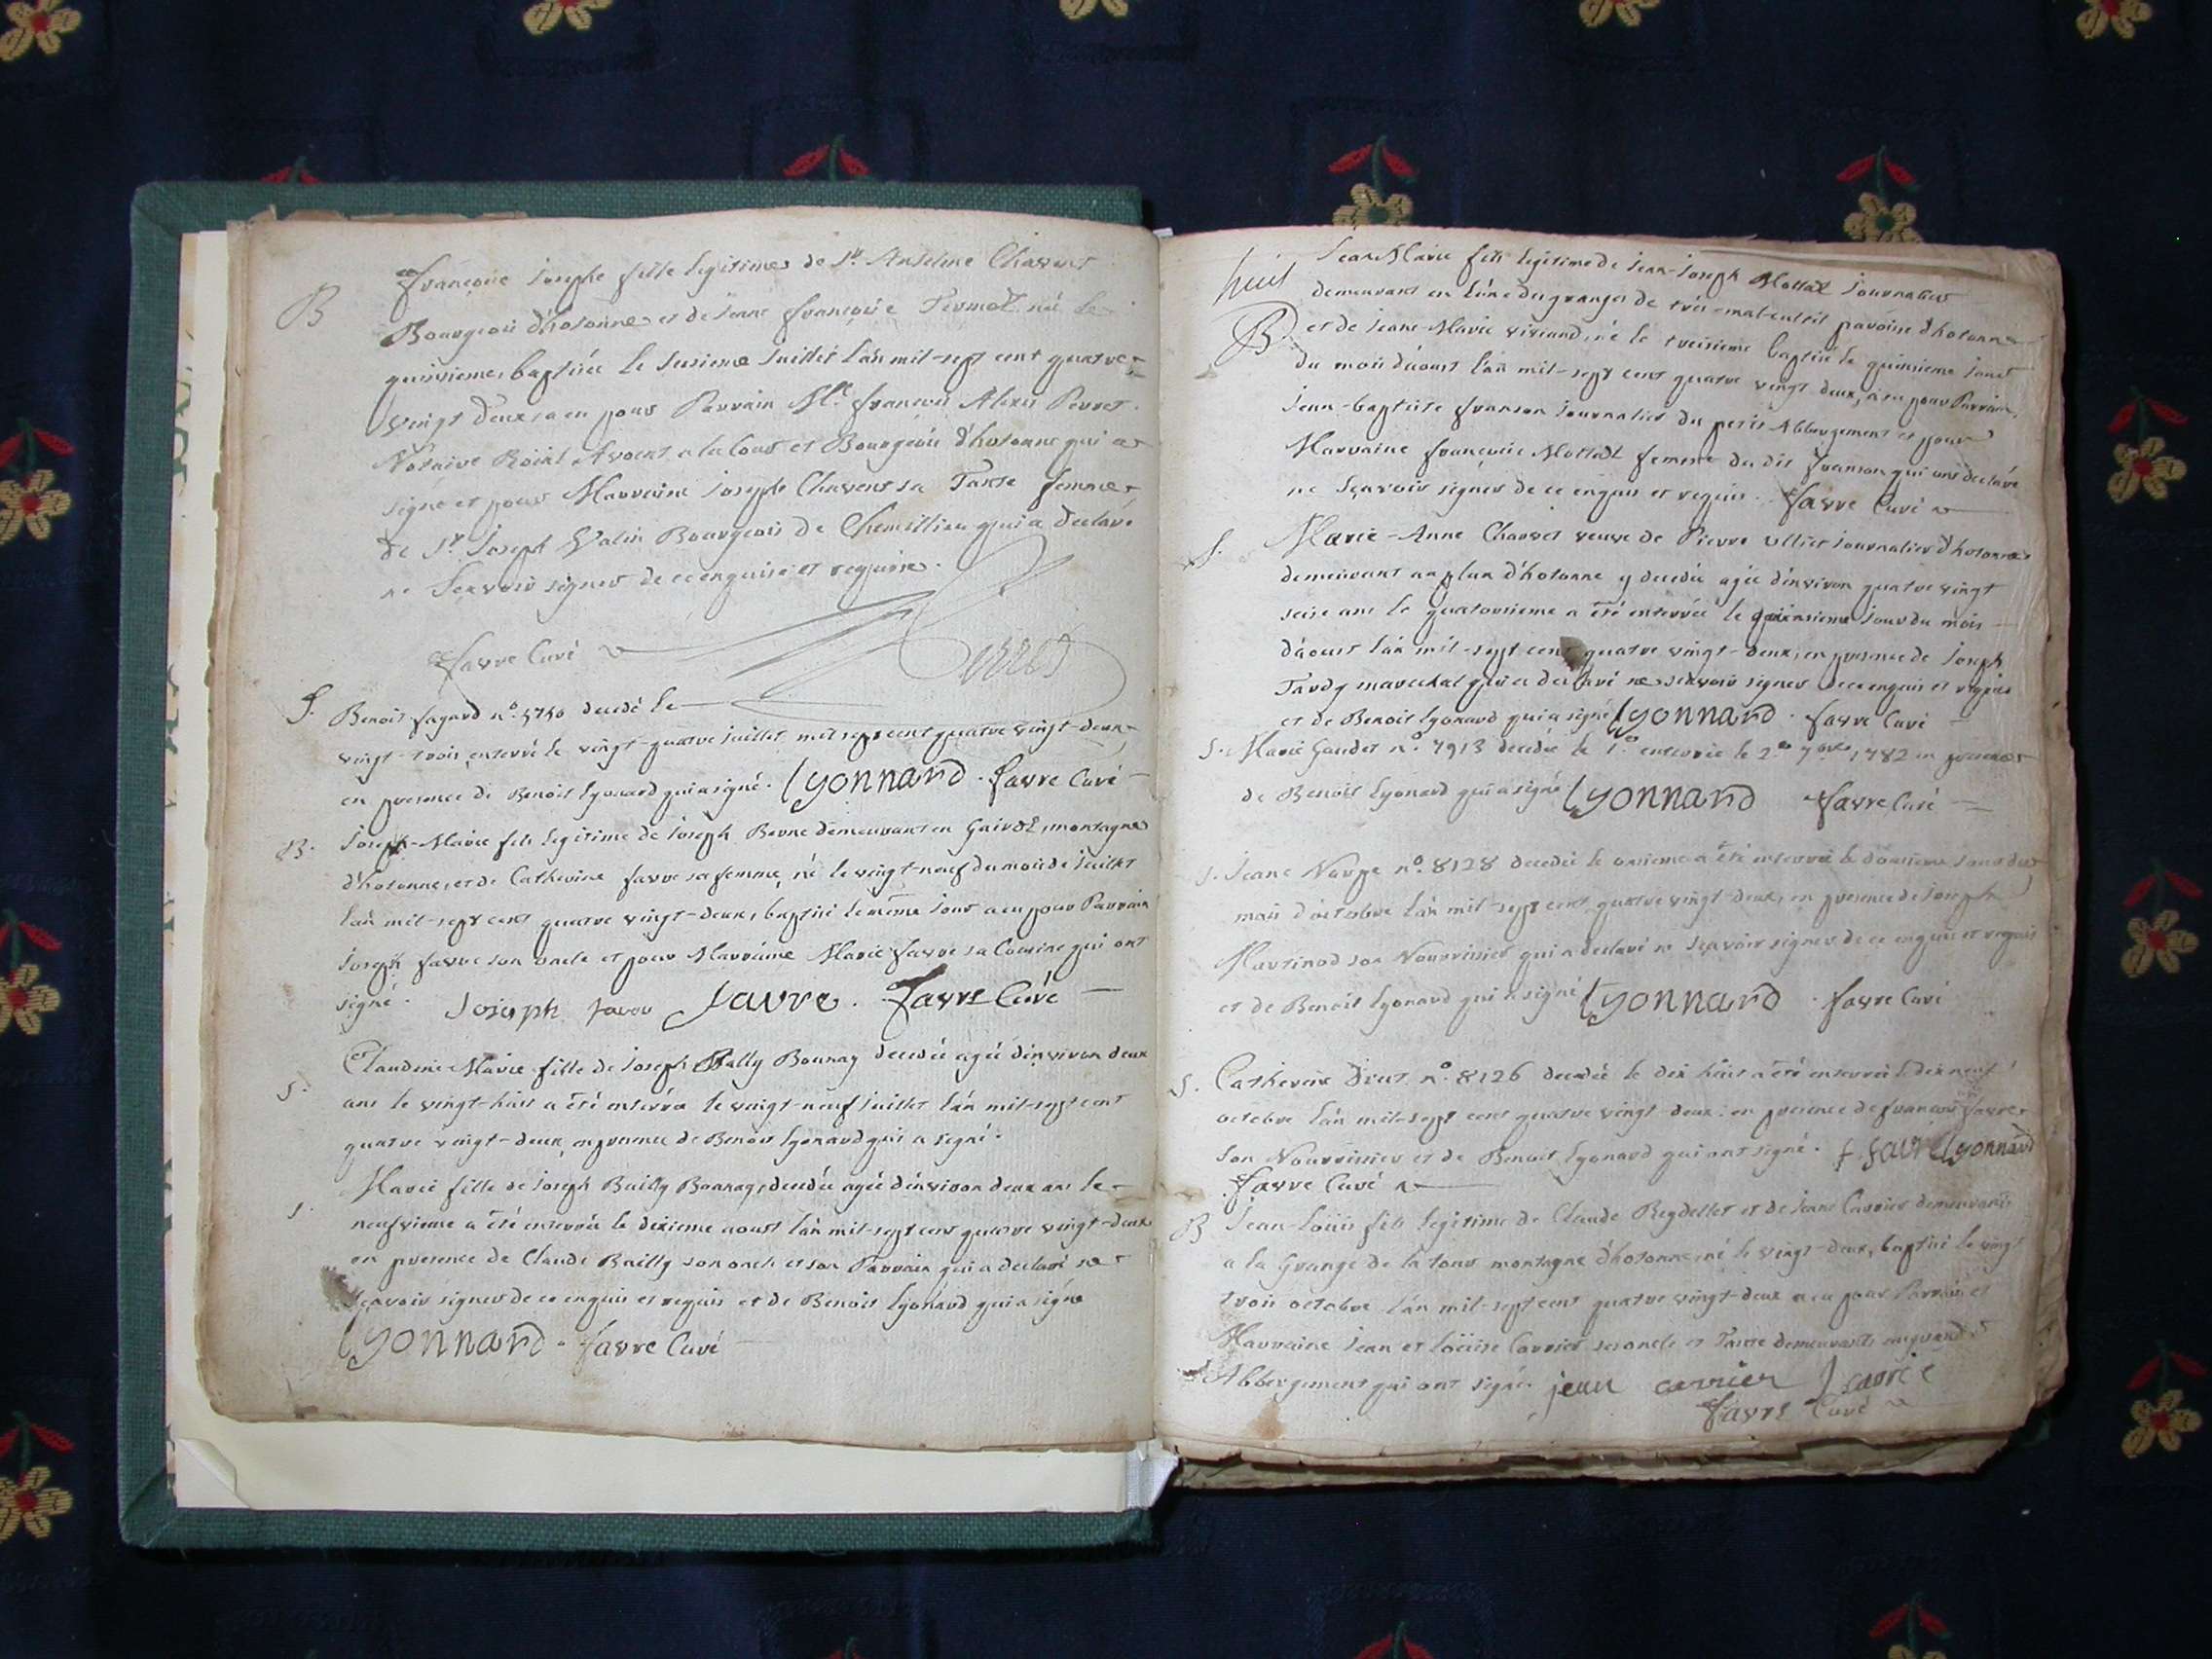 B
françoise Josephe fille legitime de Sr. Anselme Chavent
Bourgeois d'hotonne et de Jeanne françoise née le
quinsieme, baptisée le Juillet l'an mil-sept cent quatre
vingt deux, a eu pour Parrain Me. francois Alexis Perret
Notaire Roial Avocat a la Cour et Bourgeois d'hotonne qui a
signé et pour Marraine Josephe Chavent sa Tante femme
de Sr. Joseph Bourgeois de Chemillieu qui a declaré
ne Scavoir signer de ce enquise et requise.
favre Curé Perret
S. Benoit fagard no. 5750 decedé le
vingt-trois, enterré le vingt-quatre juillet mil sept cent quatre vingt-deux
en presence de Benoit Lyonard qui a signé. Lyonnard. favre Curé
B. Joseph-Marie fils legitime de Joseph Borne demeurant en montagne
d'hotonne, et de Catherine favre sa femme, né le vingt-neuf du mois de Juillet
l'an mil-sept cent quatre vingt-deux, baptisé le même Jour a eu pour Parrain
Joseph favre son oncle et pour Marraine Marie favre sa Cousine qui ont
signé. Joseph favre favre. favre Curé
S. Claudine-Marie fille de Joseph Bally Bonnay decedée agée d'inviron deux
ans le vingt-huit a été enterrée le vingt-neuf juillet l'an mil-sept cent
quatre vingt-deux, en presence de Benoit Lyonard qui a signé.
S. Marie fille de Joseph Bailly Bonnay, decedée agée d'inviron deux ans le
neufvieme a été enterrée le dixieme aoust l'an mil-sept cent quatre vingt-deux
en presence de Claude Bailly son oncle et son Parrain qui a declaré ne
scavoir signer de ce enquis et requis et de Benoit Lyonard qui a signé
Lyonnard. favre Curé
huit
B
Jean Marie fils legitime de Jean-Joseph Mottat Journalier
demeurant en des granges de tres-mal-cultil paroisse d'hotonne
et de Jeane-Marie viviand, né le treisieme baptisé le quinsieme Jour
du mois d'aoust l'an mil-sept cent quatre vingt deux, a eu pour Parrain
Jean-baptiste franson Journalier du petit Abbergement et pour
Marraine françoise Mottat femme du dit franson qui ont declaré
ne Sçavoir signer de ce enquis et requis. favre Curé
S. Marie-Anne Chavet veuve de Pierre ullier Journalier d'hotonne
demeurant au plan d'hotonne y decedée agée d'inviron quatre vingt
seise ans le quatorsieme a été enterrée le quinsieme Jour du mois
d'aoust l'an mil-sept cent quatre vingt-deux, en presence de Joseph
Tardy marechal qui a declaré ne scavoir signer de ce enquis et requis
et de Benoit Lyonard qui a signé Lyonnard. favre Curé
S. Marie Gaudet no. 7913 decedée le 1o. enterrée le 2o. 7bre 1782 en presence
de Benoit Lyonard qui a signé Lyonnard favre Curé
S. Jeane no. 8128 decedée le onsieme a été enterrée le dousieme Jour du
mois d'octobre l'an mil-sept cent quatre vingt-deux, en presence de Joseph
Martinod son Nourrissier qui a declaré ne sçavoir signer de ce enquis et requis
et de Benoit Lyonard qui a signé Lyonnard. favre Curé
S. Catherine no. 8126 decedée le dix huit a été enterrée le dix neuf
octobre l'an mil-sept cent quatre vingt-deux: en presence de francois favre
son Nourrissier et de Benoit Lyonard qui ont signé. f favre Lyonnard
favre Curé
B Jean-Loüis fils legitime de Claude Reydellet et de Jeane Carrier demeurants
a la Grange de la tour montagne d'hotonne, né le vingt-deux, baptisé le vingt
trois octobre l'an mil-sept cent quatre vingt-deux a eu pour Parrain et
Marraine Jean et Loüise Carrier ses oncle et Tante demeurants au grand
Abbergement qui ont signé. jean carrier
favre Curé